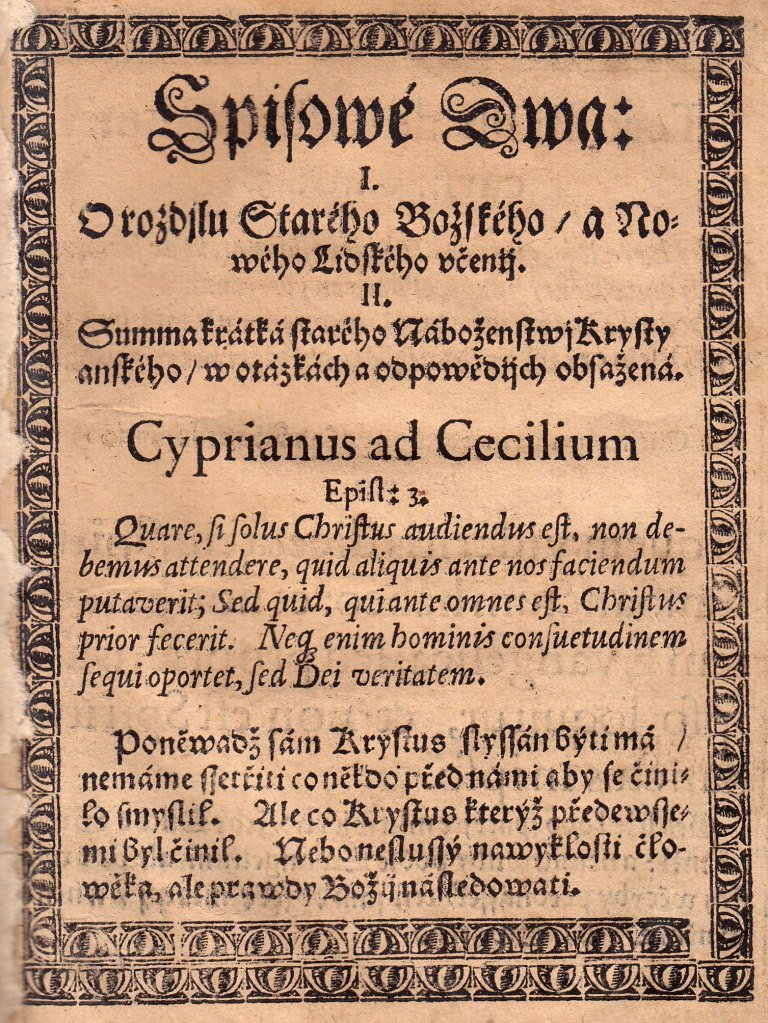 Spiſowé Dwa:
I.
O rozdjlu Starého Božſkého / a No-
wého Lidſkého včenij.
II.
Summa krátká ſtarého Náboženſtwj Kryſty
anſkého / w otázkách a odpowědijch obſažená.
Cyprianus ad Cecilium
Epiſt: 3.
Quare, ſi ſolus Chriſtus audiendus eſt, non de-
bemus attendere, quid aliquis ante nos faciendum
putaverit; Sed quid, qui ante omnes eſt, Chriſtus
prior fecerit. Neqꝫ enim hominis conſuetudinem
ſequi oportet, ſed Dei veritatem.
Poněwadž ſám Kryſtus ſlyſſán býti má /
nemáme ſſetřiti co někdo před námi aby ſe čini-
lo ſmyſlil. Ale co Kryſtus kterýž předewſſe-
mi byl činil. Nebo neſluſſý nawykloſti člo-
wěka, ale prawdy Božij náſledowati.